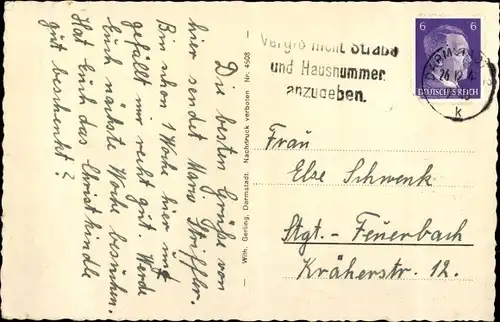 Die besten Grüße von
hier sendet Maria
Bin schon 1 Woche hier und
gefällt mir recht gut. Werde
Euch nächste Woche besuchen.
Hat Euch das Christkindle
gut beschenkt?
Wilh. Gerling, Darmstadt. Nachdruck verboten Nr. 4508
Vergiß nicht Straße
und Hausnummer
anzugeben.
6 6
DEUTSCHES REICH
26.12.
k
Frau
Else Schwenk
Stgt.- Feuerbach
Kräherstr. 12.